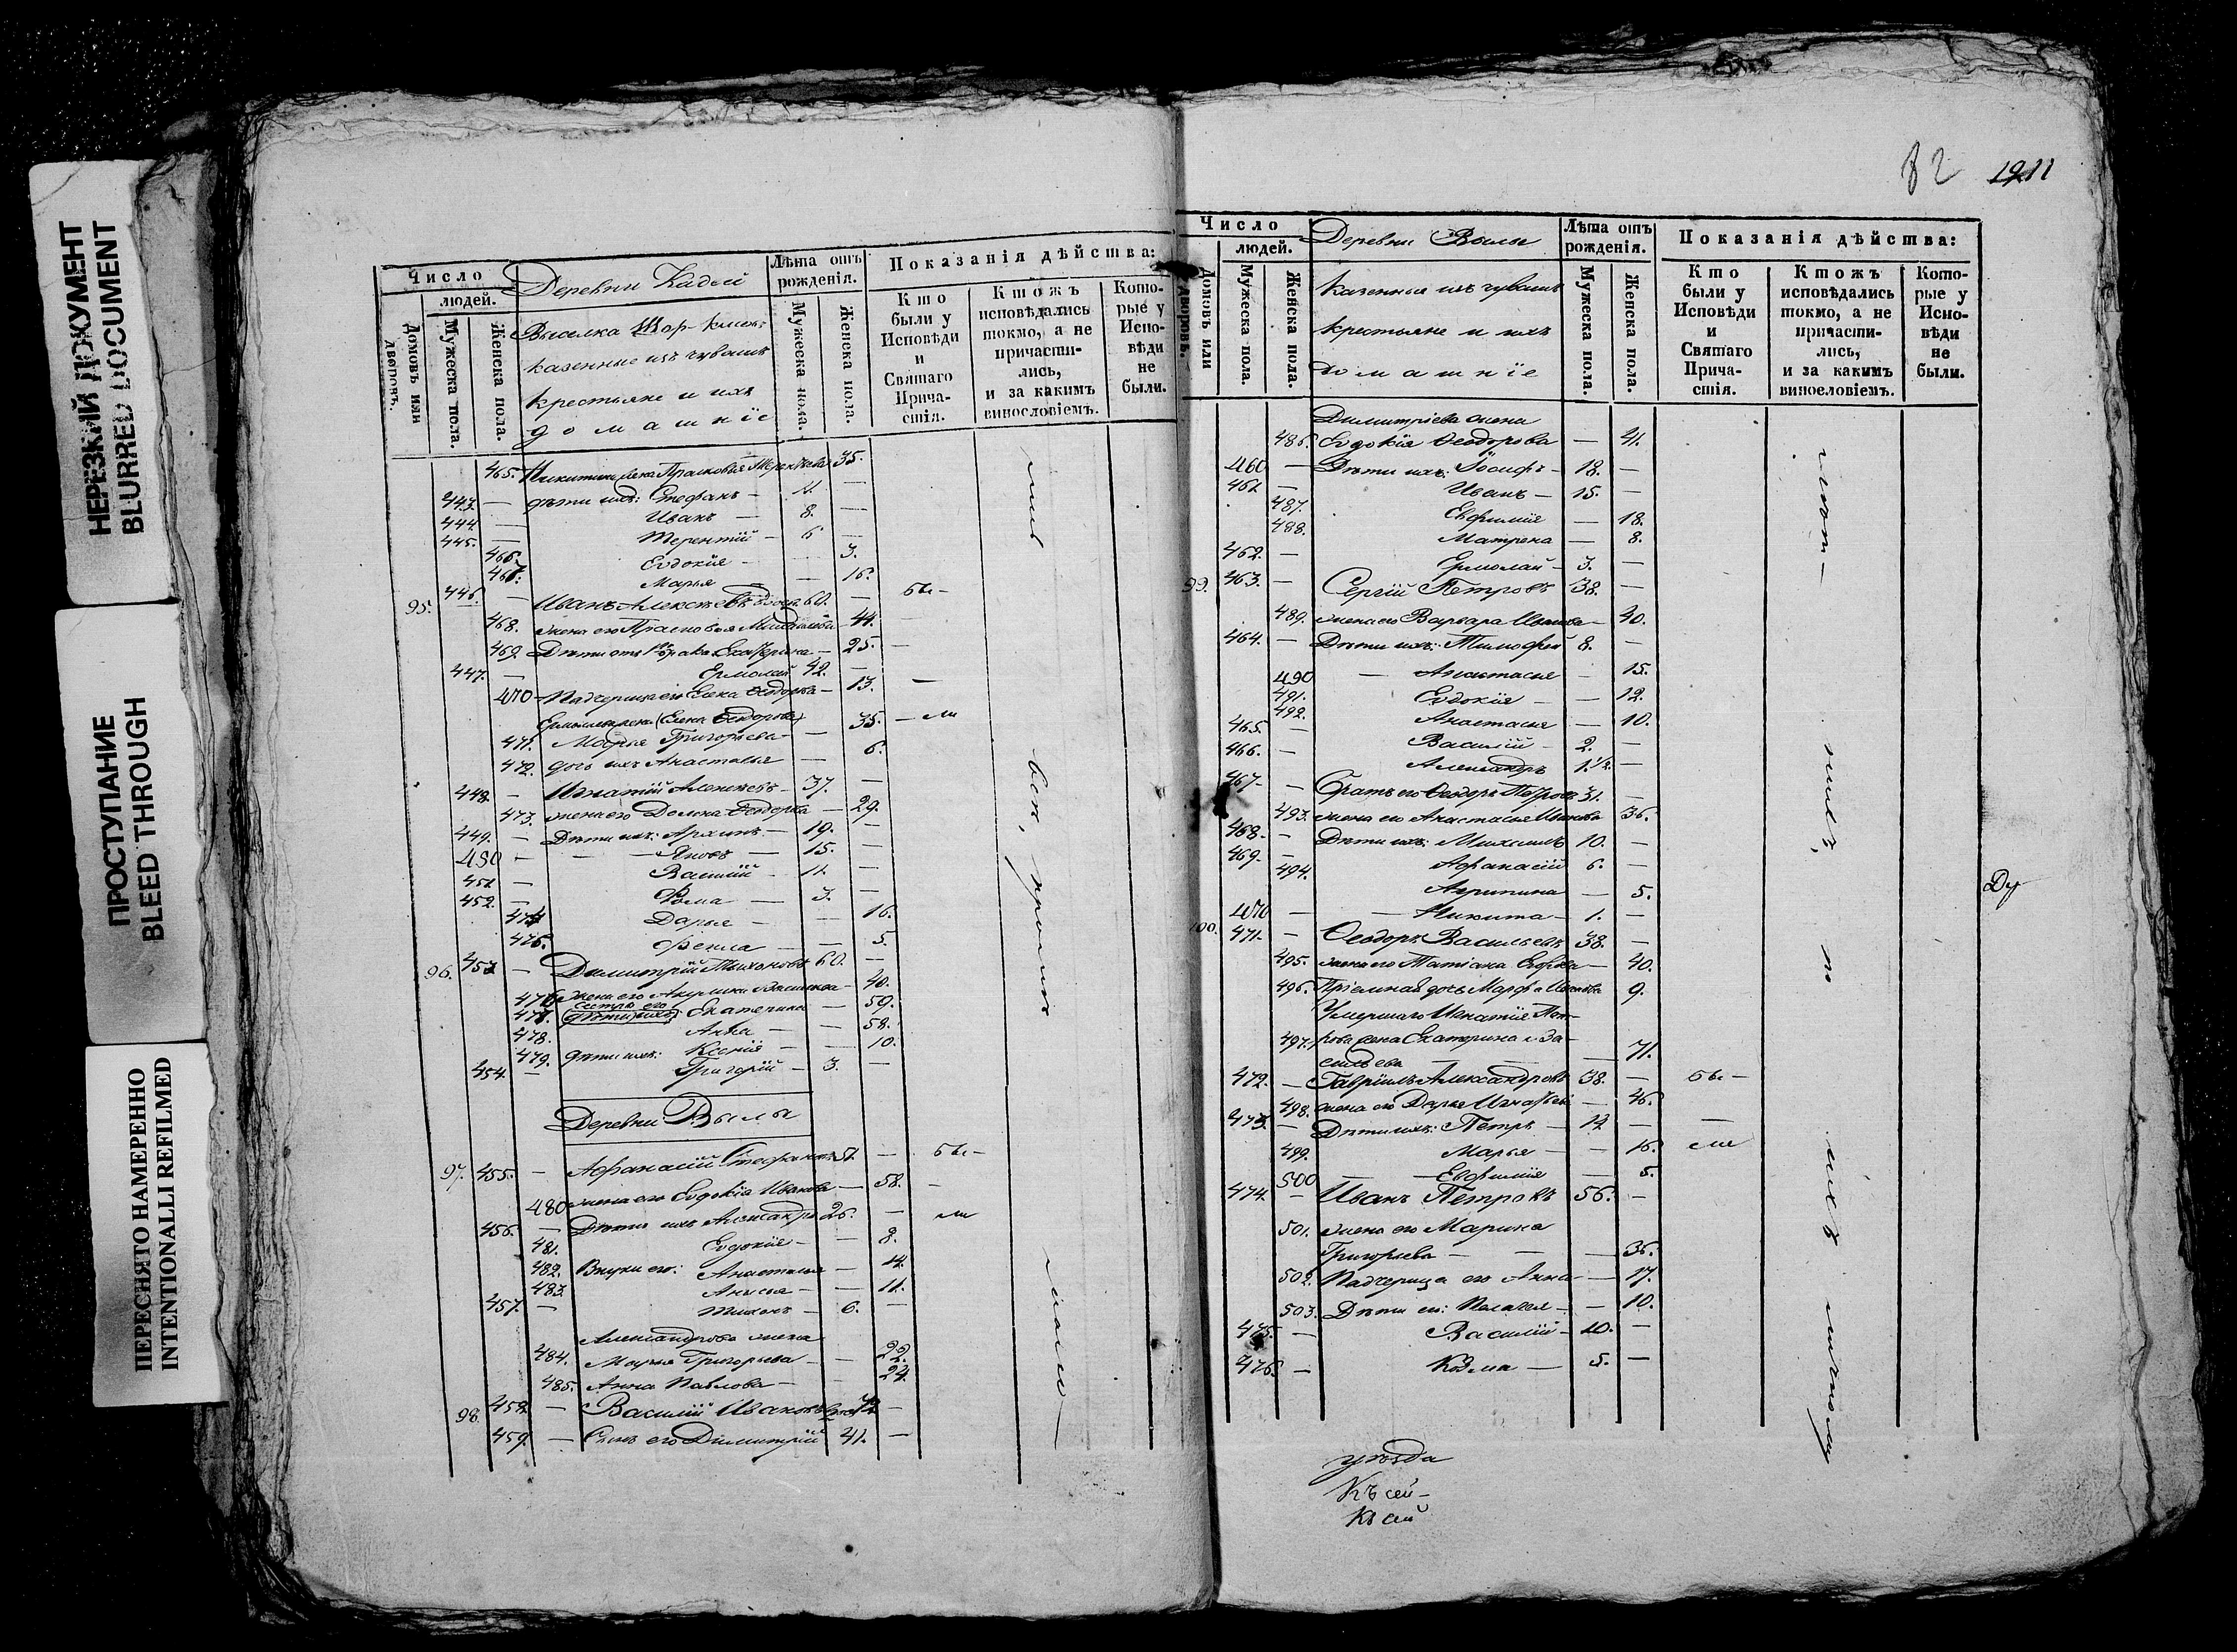 НЕРЕЗКИЙ ДОКУМЕНТ
BLURRED DOCUMENT
ПРОСТУПАНИЕ
BLEED THROUGH
ПЕРЕСНЯТО НАМЕРЕННО
INTENTIONALLI REFILMED
Число
людей.
Домовъ или дворовъ.
Мужеска пола.
Женска пола.
Деревни
Выселка
казенные изъ чувашъ
крестьяне и ихъ
домашніе
Лѣта отъ рожденія.
Мужеска пола.
Женска пола.
Показанія дѣйства:
Кто были у Исповѣди и Святаго Прича-стія.
Ктожъ исповѣдались токмо, а не причасти-лись, и за какимъ винословіемъ.
Кото-рые у Испо-вѣди не были.
465. Никитина жена Прасковья 35.
443. — дѣти ихъ: Стефанъ — 11. —
444. — Иванъ — 8. —
445. — Терентій — 6 —
466. Евдокія — 3.
467. Марья — 16.
95. 446. — Иванъ Алексѣевъ 60. — бы-
468. жена его Прасковья 44.
469. Дѣти отъ брака Екатерина — 25. —
447. — Ермолай 42. —
470 — Падчерица его Елена Ѳеодорова — 13. —
жена (Елена Ѳеодорова) 35. — ли
471. Марья Григорьева — —
472. дочь ихъ Анастасья — 6.
448. — Игнатій Алексѣевъ — 37. —
473. жена его Домна Ѳеодорова — 29.
449. — Дѣти ихъ: Архипъ — 19. —
450 — Яковъ — 15. —
451 — Василій — 11. —
452. — Ѳома — 3. —
474 Дарья — — 16.
475. Ѳекла — — 5.
96. 453 — Димитрій Тихоновъ 60. —
476 жена его 40.
сестры его
477. дѣти ихъ: Екатерина — 59.
478. Анна — — 58.
479. дѣти ихъ: Ксенія — — 10.
454. — Григорій — 3. —
Деревни Вылы
97. 455. — Аѳанасій Стефановъ 57. — бы-
480 жена его Евдокія Иванова — 58. —
456. — Дѣти ихъ Александръ 26. — ли
481. Евдокія — — 8.
482. Внуки его: Анастасья — 14.
483. Анисья — — 11.
457. — Тихонъ — 6. —
Александрова жена
484. Марья Григорьева — — 22.
485. Анна Павлова — — 24.
98. 458. — Василій Ивановъ 72 —
459. — Сынъ его Димитрій 41. —
вси,
82 1211
Число
людей.
Домовъ или дворовъ.
Мужеска пола.
Женска пола.
Деревни Вылы
казенные изъ чувашъ
крестьяне и ихъ
домашніе
Лѣта отъ рожденія.
Мужеска пола.
Женска пола.
Показанія дѣйства:
Кто были у Исповѣди и Святаго Прича-стія.
Ктожъ исповѣдались токмо, а не причасти-лись, и за какимъ винословіемъ.
Кото-рые у Испо-вѣди не были.
Димитріева жена
486. Евдокія Ѳеодорова — 41.
460 — Дѣти ихъ: Іосифъ — 18. —
461 — Иванъ — 15. —
487. Евфимія — 18.
488. Матрена — 8.
462. — Ермолай — 3. —
99. 463. — Сергій Петровъ 38. —
489. жена его Варвара Иванова — 40.
464. — Дѣти ихъ: Тимоѳей 8. —
490 — Анастасья — 15.
491. Евдокія — 12.
492. Анастасья — 10.
465. — Василій — 2. —
466. — Александръ 1.1/2 —
467. — Братъ его Ѳеодоръ Петровъ 31. —
493. жена его Анастасья Иванова 36.
468. — Дѣти ихъ: Михаилъ 10. —
469. — Аѳанасій 6. —
494. Агрипина — 5.
470 — Никита — 1. —
100. 471. — Ѳеодоръ Васильевъ 38. —
495. жена его Татіана Егорова — 40.
496. Пріемная дочь Марфа Иванова 9.
Умершаго Игнатія Пет-
497. рова жена Екатерина
— — 71.
472. — Гавріилъ Александровъ 38. — бы-
498. жена его Дарья Игнатьева — 46.
473. — Дѣти ихъ: Петръ — 12 — —
499. Марья — — 16. ли
500 — Евфимія — 5.
474. — Иванъ Петровъ 56. —
501. жена его Марина
Григорьева — — — 36.
502. Падчерица его Анна — — 17.
503. Дѣти ихъ: Пелагея — — 10.
475. — Василій — 10. —
476. — Козма — 5. —
по
нихъ
Ду
уѣзда
Къ сей-
Къ сей